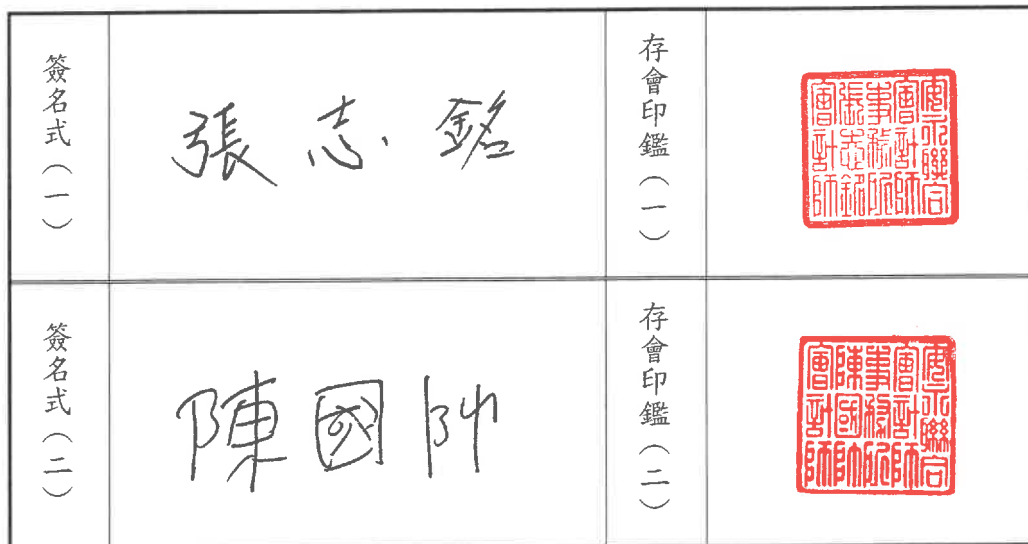 簽名式（一）
張志銘
存會印鑑（一）
安永聯合
會計師
事務所
張志銘
會計師
簽名式（二）
陳國帥
存會印鑑（二）
安永聯合
會計師
事務所
陳國帥
會計師